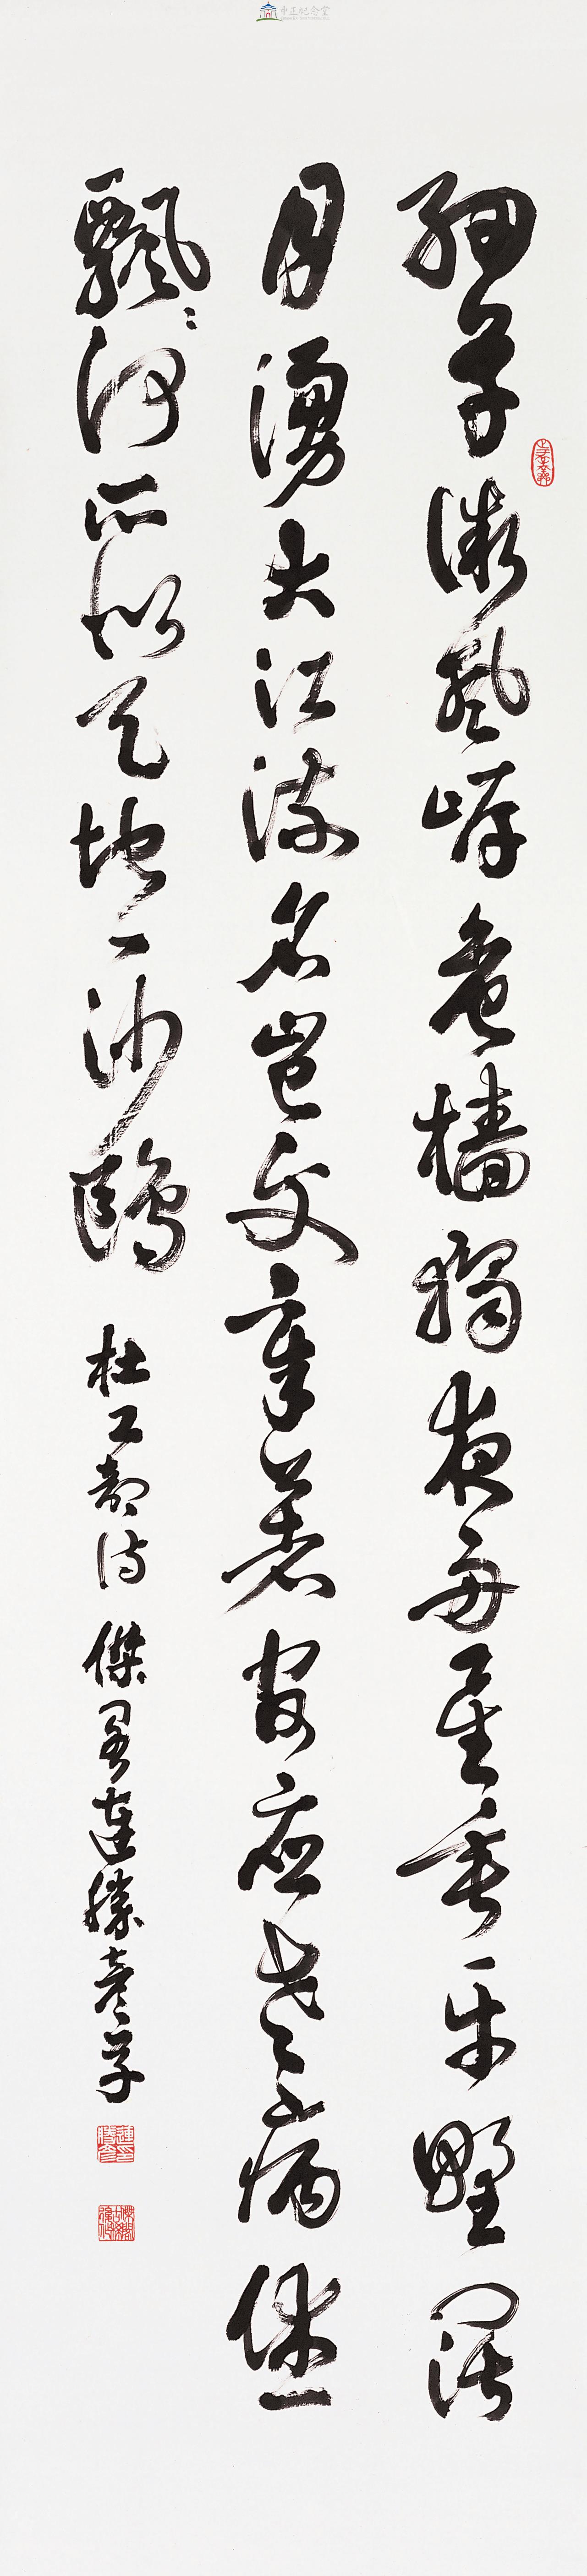 中正紀念堂
細草微風岸危檣獨夜舟星垂平野闊
月湧大江流名豈文章著官應老病休
飄飄何所似天地一沙鷗
杜工部詩 傑閣連勝彥草